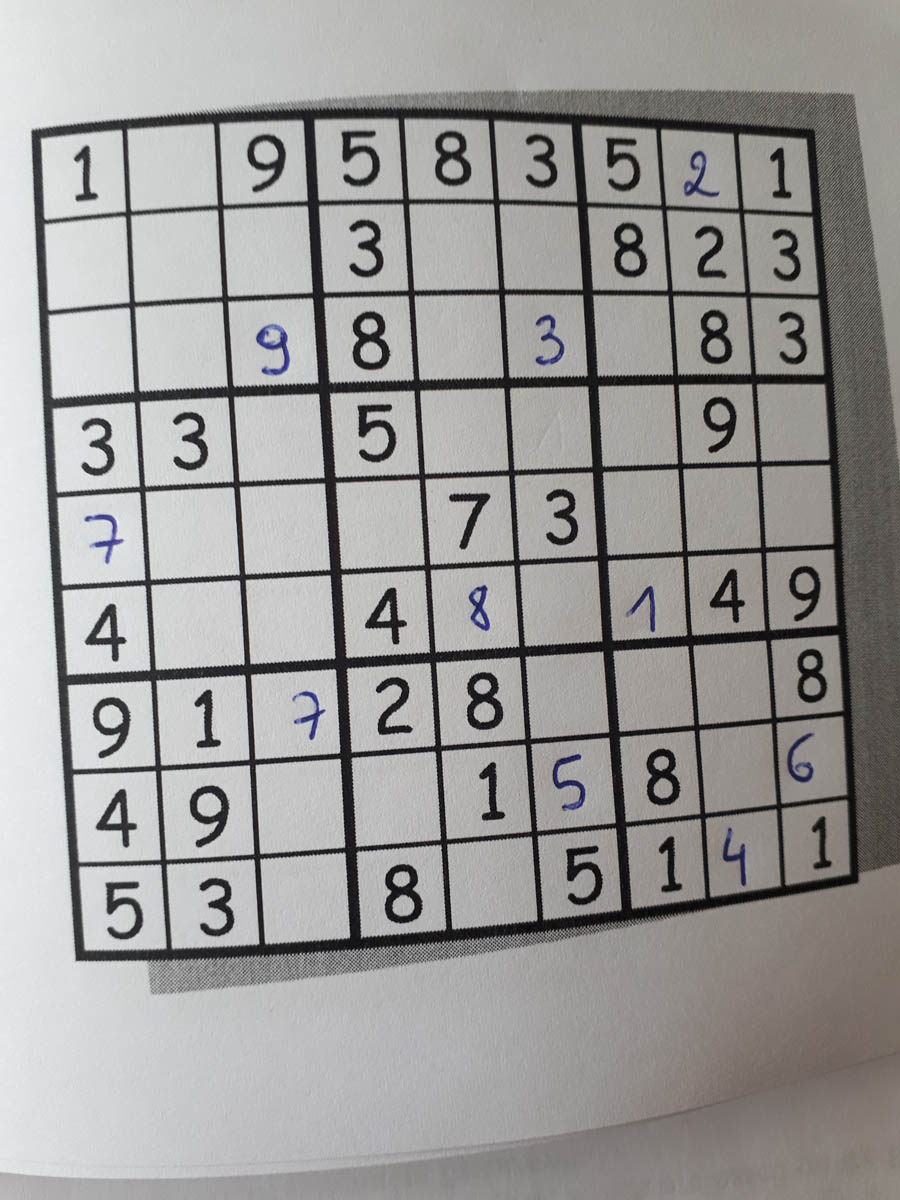 1 9 5 8 3 5 2 1
3 8 2 3
9 8 3 8 3
3 3 5 9
7 7 3
4 4 8 1 4 9
9 1 7 2 8 8
4 9 1 5 8 6
5 3 8 5 1 4 1